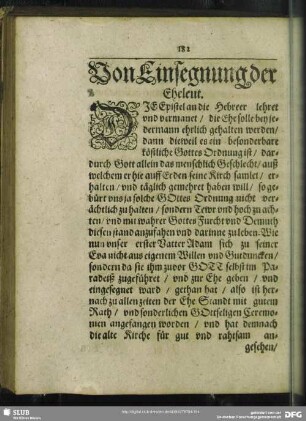 181
Von Einsegnung der
Eheleut.
DIE Epistel an die Hebreer lehret
vnd vermanet / die Ehe solle bey je-
dermann ehrlich gehalten werden /
dann dieweil es ein besonderbare
köstliche Gottes Ordnung ist / dar-
durch Gott allein das menschlich Geschlecht / auß
welchem er hie auff Erden seine Kirch samlet / er-
halten / vnd täglich gemehret haben will / so ge-
bürt vns ja solche GOttes Ordnung nicht ver-
ächtlich zu halten / sondern Tewr vnd hoch zu ach-
ten / vnd mit wahrer Gottes Furcht vnd Demuth
diesen stand anzufahen vnd darinne zuleben. Wie
nun vnser erster Vatter Adam sich zu seiner
Eva nicht aus eigenem Willen vnd Gutduncken /
sondern da sie ihm zuvor GOTT selbst im Pa-
radeiß zugeführet / vnd zur Ehe geben / vnd
eingesegnet ward / gethan hat / also ist her-
nach zu allen zeiten der Ehe Standt mit gutem
Rath / vnd sonderlichen Gottseligen Ceremo-
nien angefangen worden / vnd hat demnach
die alte Kirche für gut vnd rahtsam an-
gesehen /
SLUB